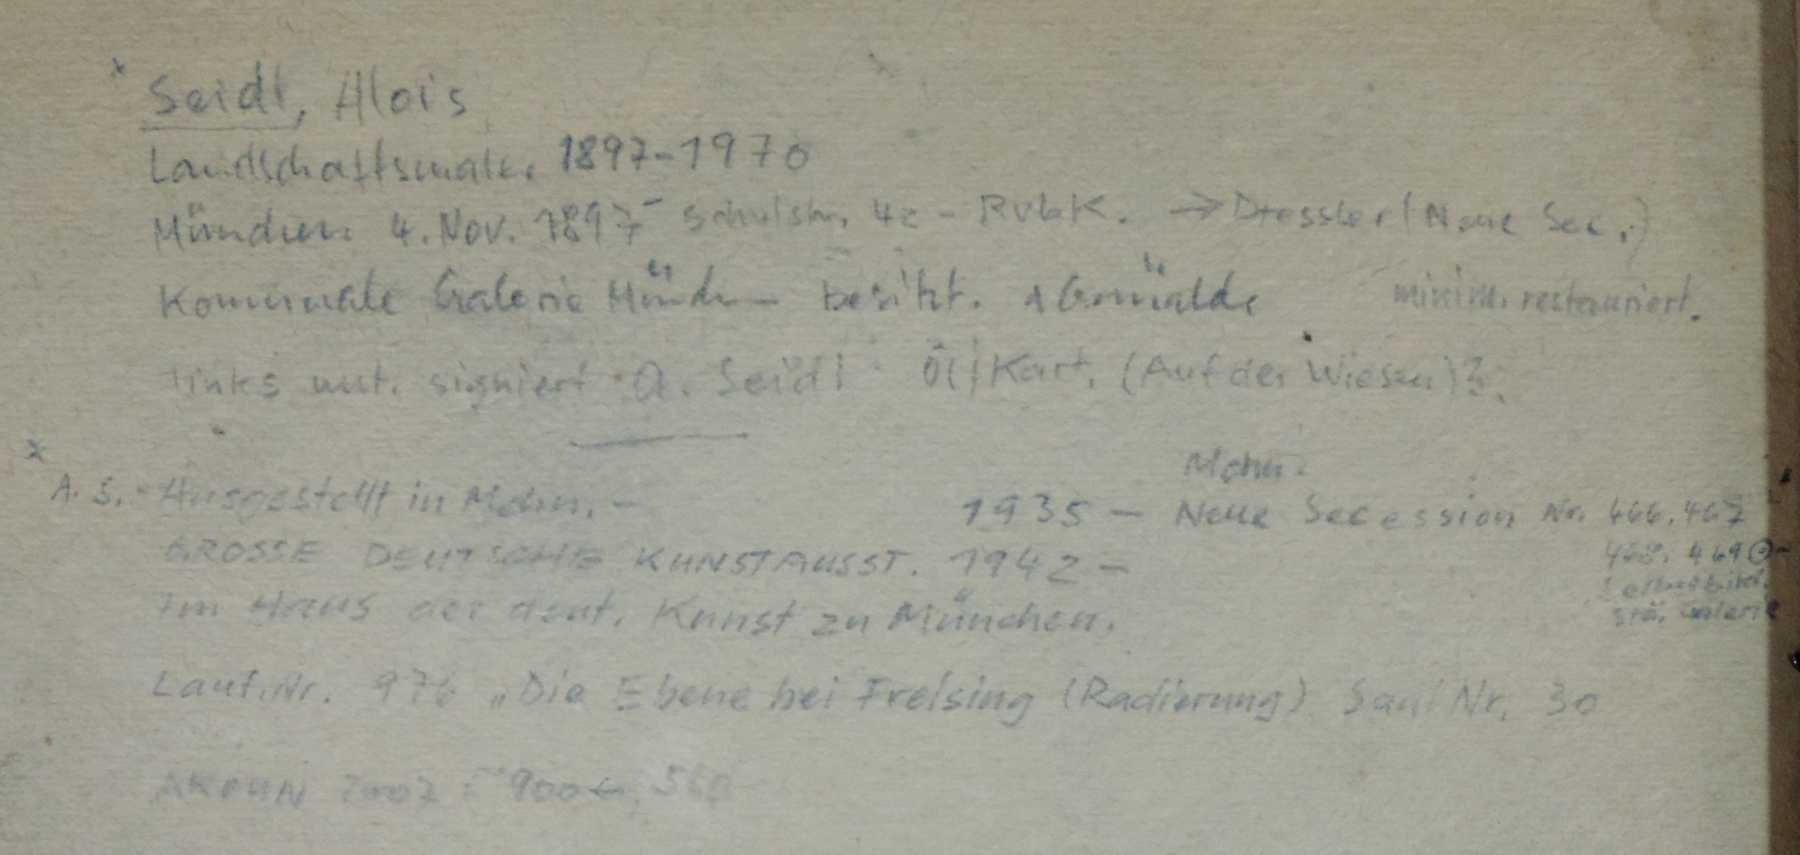 Seidl, Alois
Landschaftsmaler 1897-1970
München 4. Nov. 1897 - Schulstr. 4c - RvbK. → Dressler (Neue Sec.)
Kommunale Galerie München besitzt. Gemälde minim. restauriert.
links unt. signiert A. Seidl Öl/Kart. (Auf der Wiesen)?.
A. S. - Ausgestellt in Mchn. - 1935 - Mchn. Neue Secession Nr. 466. 467
468. 469
GROSSE DEUTSCHE KUNSTAUSST. 1942 -
Im Haus der deut. Kunst zu München.
stä. Galerie
Lauf. Nr. 976 „Die Ebene bei Freising (Radierung) Saal Nr. 30
2007 : 900